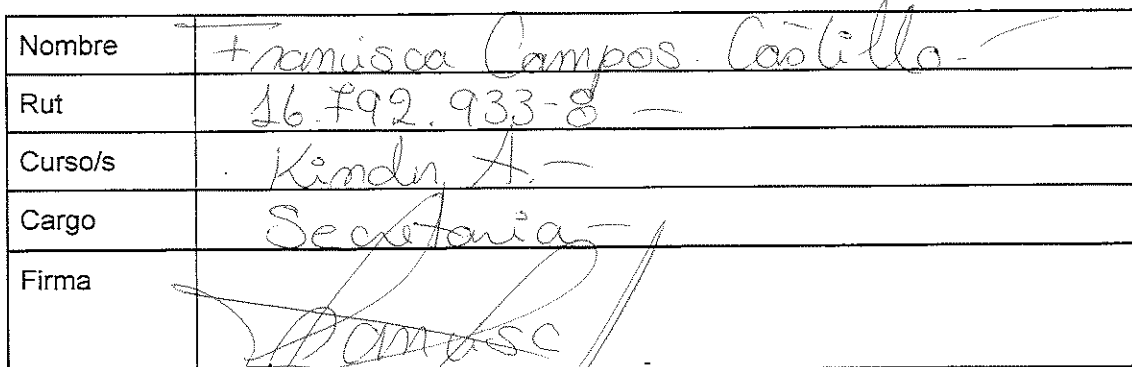 Nombre Francisca Campos Castillo.-
Rut 16.792.933-8 -
Curso/s Kinder A.-
Cargo Secretaria-
Firma